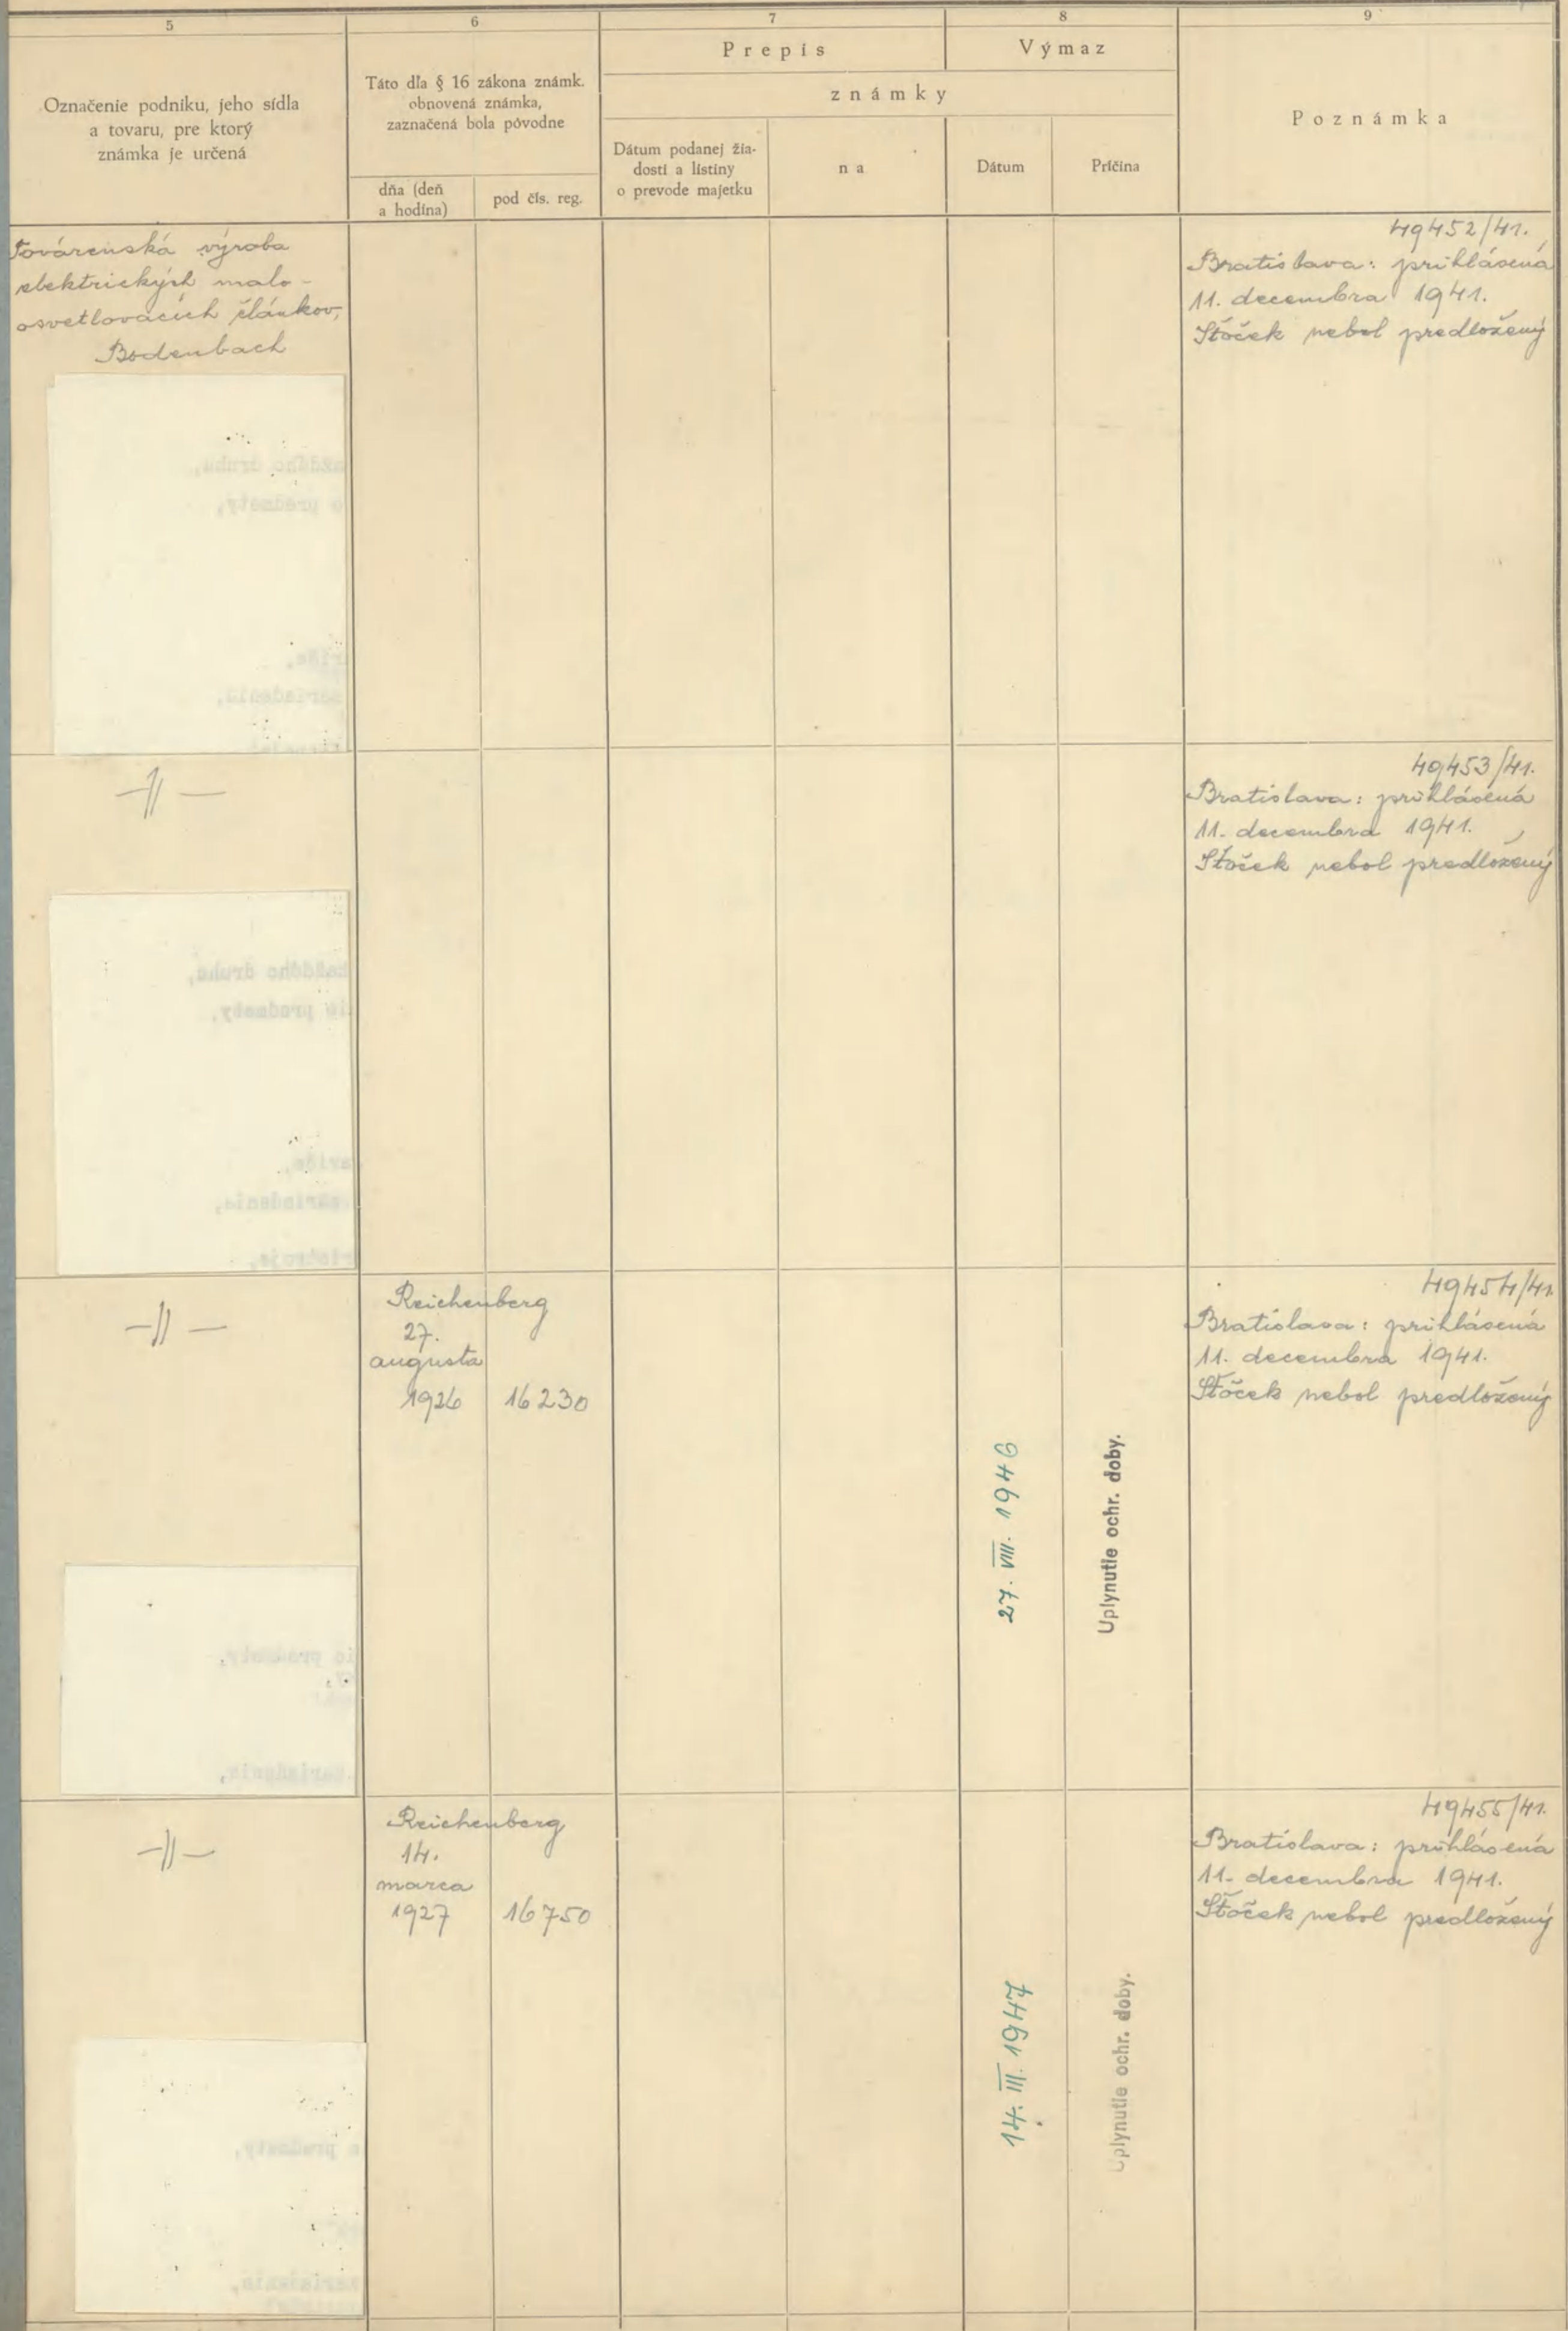 5
6
7
8
9
Označenie podniku, jeho sídla
a tovaru, pre ktorý
známka je určená
Táto dľa § 16 zákona známk.
obnovená známka,
zaznačená bola pôvodne
dňa (deň
a hodina)
pod čís. reg.
Prepis
Výmaz
známky
Dátum podanej žia-
dosti a listiny
o prevode majetku
na
Dátum
Príčina
Poznámka
Továrenská výroba
elektrických malo-
osvetlovacích článkov,
Bodenbach
49452/41.
Bratislava: prihlásená
11. decembra 1941.
Štoček nebol predložený
každého druhu,
predmety,
zariadenia,
—〃—
49453/41.
Bratislava: prihlásená
11. decembra 1941.
Štoček nebol predložený
každého druhu,
predmety,
zariadenia,
—〃—
Reichenberg
27.
augusta
1926
16230
27. VIII. 1946
Uplynutie ochr. doby.
49454/41.
Bratislava: prihlásená
11. decembra 1941.
Štoček nebol predložený
predmety,
zariadenia,
—〃—
Reichenberg
14.
marca
1927
16750
14. III. 1947
Uplynutie ochr. doby.
49455/41.
Bratislava: prihlásená
11. decembra 1941.
Štoček nebol predložený
predmety,